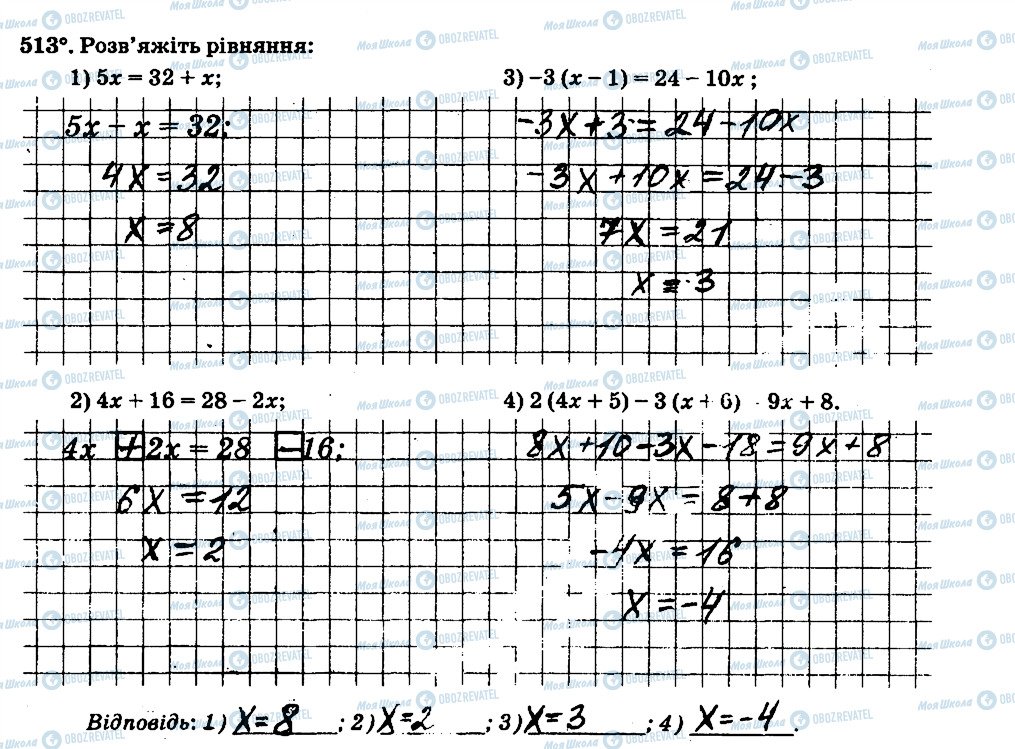 513°. Розв’яжіть рівняння:
1) 5x = 32 + x;
5x – x = 32;
4x = 32
x = 8
3) –3 (x – 1) = 24 – 10x ;
-3x + 3 = 24 - 10x
-3x + 10x = 24 - 3
7x = 21
x = 3
2) 4x + 16 = 28 – 2x;
4x + 2x = 28 – 16;
6x = 12
x = 2
4) 2 (4x + 5) – 3 (x + 6) - 9x + 8.
8x + 10 - 3x - 18 = 9x + 8
5x - 9x = 8 + 8
-4x = 16
x = -4
Відповідь: 1) x = 8 ; 2) x = 2 ; 3) x = 3 ; 4) x = -4 .
Моя Школа OBOZREVATEL